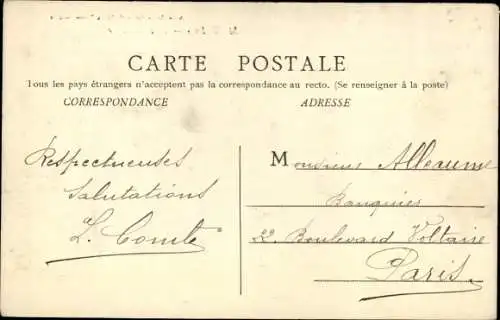 CARTE POSTALE
Tous les pays étrangers n'acceptent pas la correspondance au recto. (Se renseigner à la poste)
CORRESPONDANCE
ADRESSE
Respectueuses
Salutations
L. Comte
Monsieur Alleaume
Banquier
22 Boulevard Voltaire
Paris